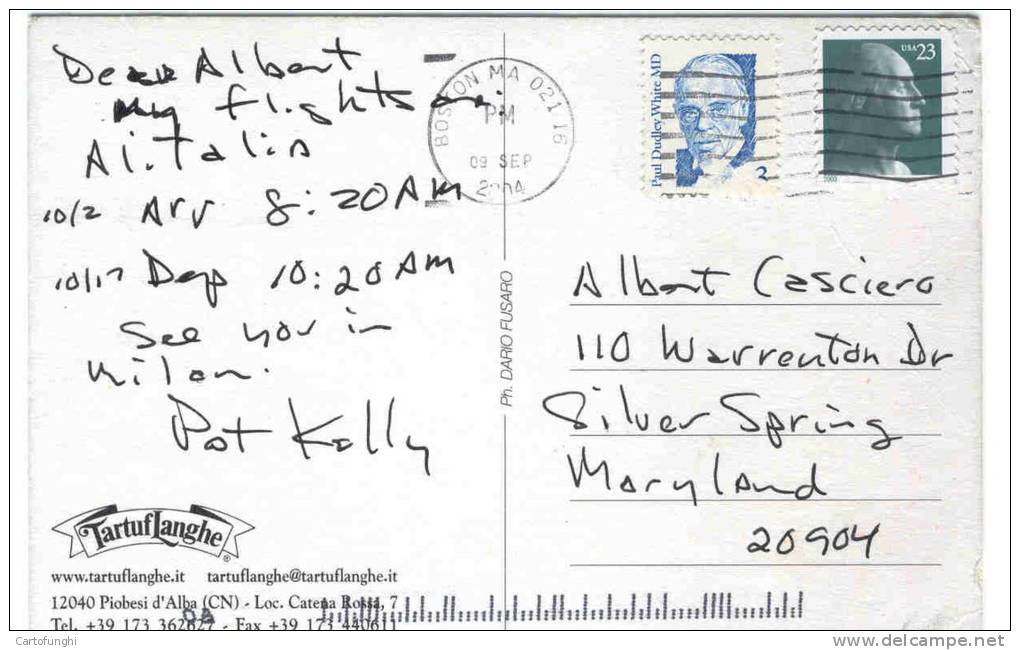 Dear Albert
My flights are:
Alitalia
10/2 Arr 8:20 AM
10/17 Dep 10:20 AM
See you in
Milan.
Pat Kelly
TartufLanghe
®
www.tartuflanghe.it tartuflanghe@tartuflanghe.it
12040 Piobesi d'Alba (CN) - Loc. Catena Rossa, 7
Tel. +39 173 362627 - Fax +39 173 440611
Ph. DARIO FUSARO
BOSTON MA 02116
PM
09 SEP
2004
Paul Dudley White MD
3
USA 23
Albert Casciero
110 Warrenton Dr
Silver Spring
Maryland
20904
Cartofunghi
delcampe.net